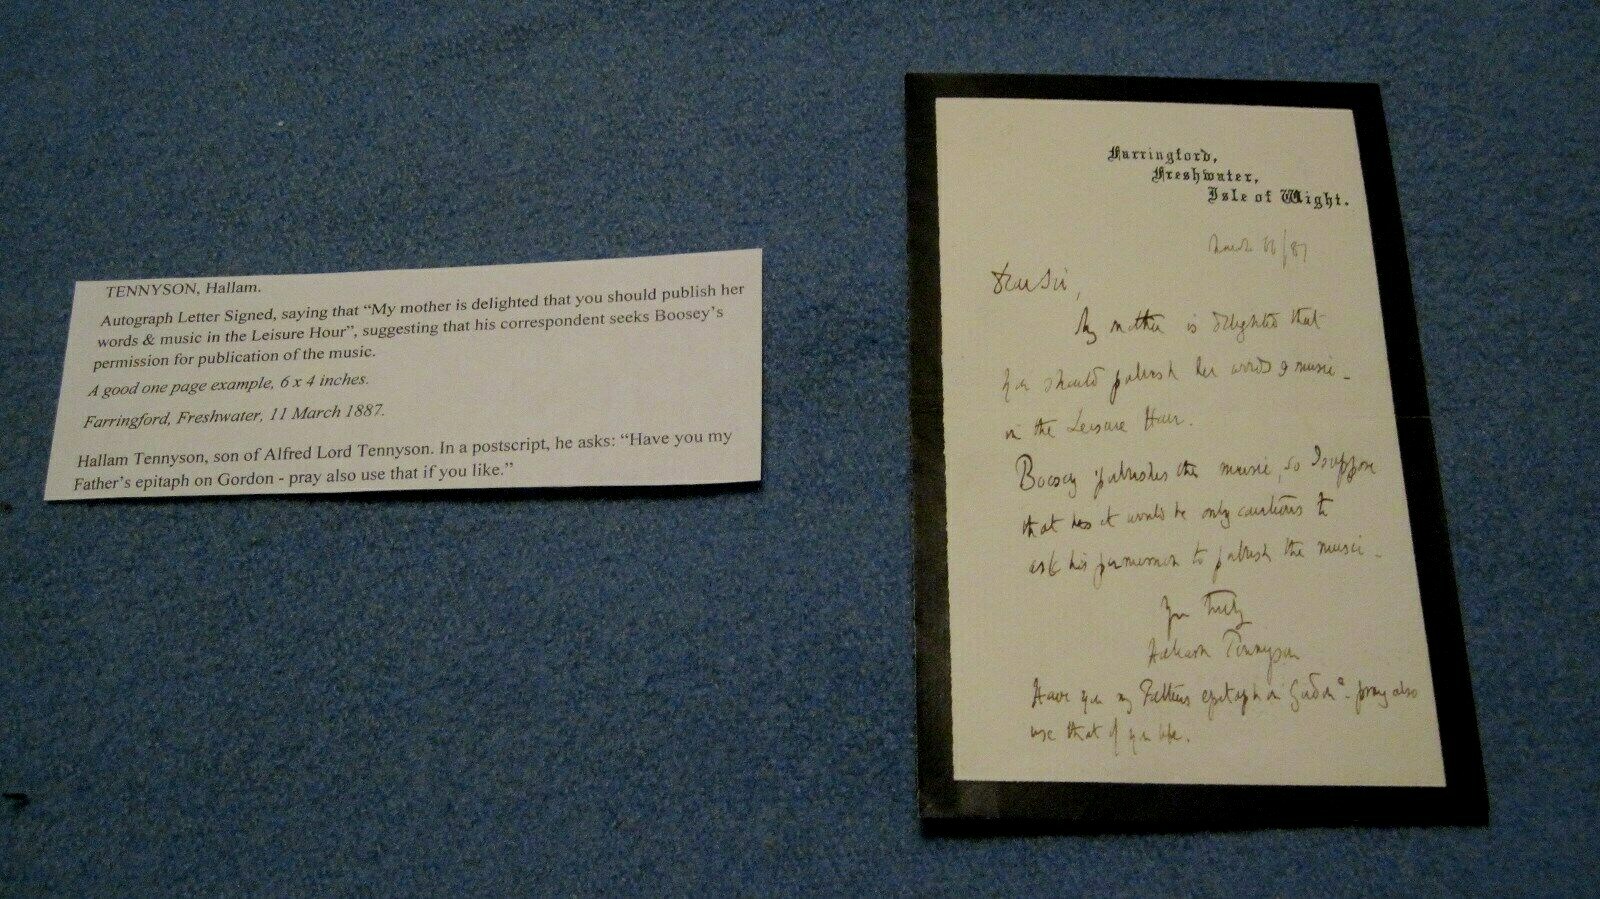 TENNYSON, Hallam.
Autograph Letter Signed, saying that “My mother is delighted that you should publish her
words & music in the Leisure Hour”, suggesting that his correspondent seeks Boosey’s
permission for publication of the music.
A good one page example, 6 x 4 inches.
Farringford, Freshwater, 11 March 1887.
Hallam Tennyson, son of Alfred Lord Tennyson. In a postscript, he asks: “Have you my
Father’s epitaph on Gordon - pray also use that if you like.”
Farringford,
Freshwater,
Isle of Wight.
March /87
Dear Sir,
My mother is delighted that
you should publish her words & music -
in the Leisure Hour.
Boosey publishes the music, so I suppose
that it would be only cautious to
ask his permission to publish the music -
Yrs truly
Hallam Tennyson
Have you my Fathers epitaph on Gordon? - pray also
use that if you like.